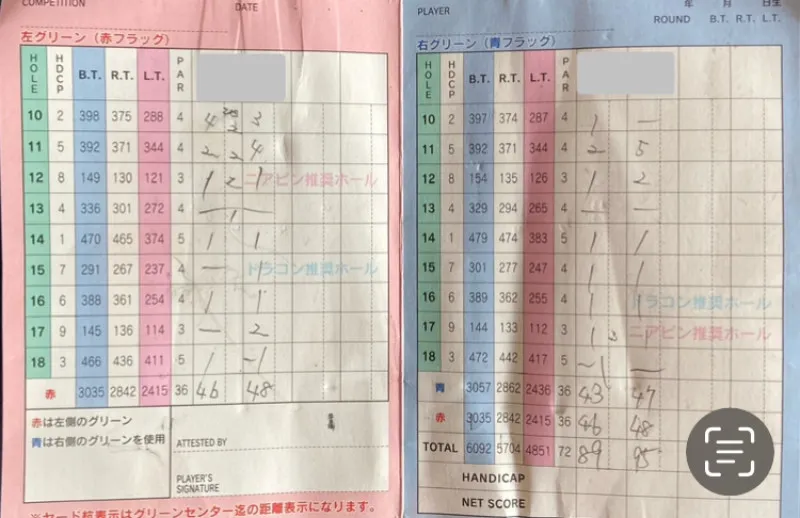 COMPETITION
DATE
左グリーン(赤フラッグ)
HOLE HDCP B.T. R.T. L.T. PAR
10 2 398 375 288 4 4 3
11 5 392 371 344 4 2 2 4
12 8 149 130 121 3 1 2 1 ニアピン推奨ホール
13 4 336 301 272 4 — 1
14 1 470 465 374 5 1 1
15 7 291 267 237 4 — 1 ドラコン推奨ホール
16 6 388 361 254 4 1 1
17 9 145 136 114 3 — 2
18 3 466 436 411 5 1 -1
赤 3035 2842 2415 36 46 48
赤は左側のグリーン
青は右側のグリーンを使用
ATTESTED BY
PLAYER'S
SIGNATURE
※ヤード杭表示はグリーンセンター迄の距離表示になります。
PLAYER
年 月 日生
ROUND B.T. R.T. L.T.
右グリーン(青フラッグ)
HOLE HDCP B.T. R.T. L.T. PAR
10 2 397 374 287 4 1 —
11 5 392 371 344 4 2 5
12 8 154 135 126 3 1 2
13 4 329 294 265 4 — —
14 1 479 474 383 5 1 1
15 7 301 277 247 4 1 1
16 6 389 362 255 4 1 1 ドラコン推奨ホール
17 9 144 133 112 3 1 1 ニアピン推奨ホール
18 3 472 442 417 5 -1 —
青 3057 2862 2436 36 43 47
赤 3035 2842 2415 36 46 48
TOTAL 6092 5704 4851 72 89 95
HANDICAP
NET SCORE